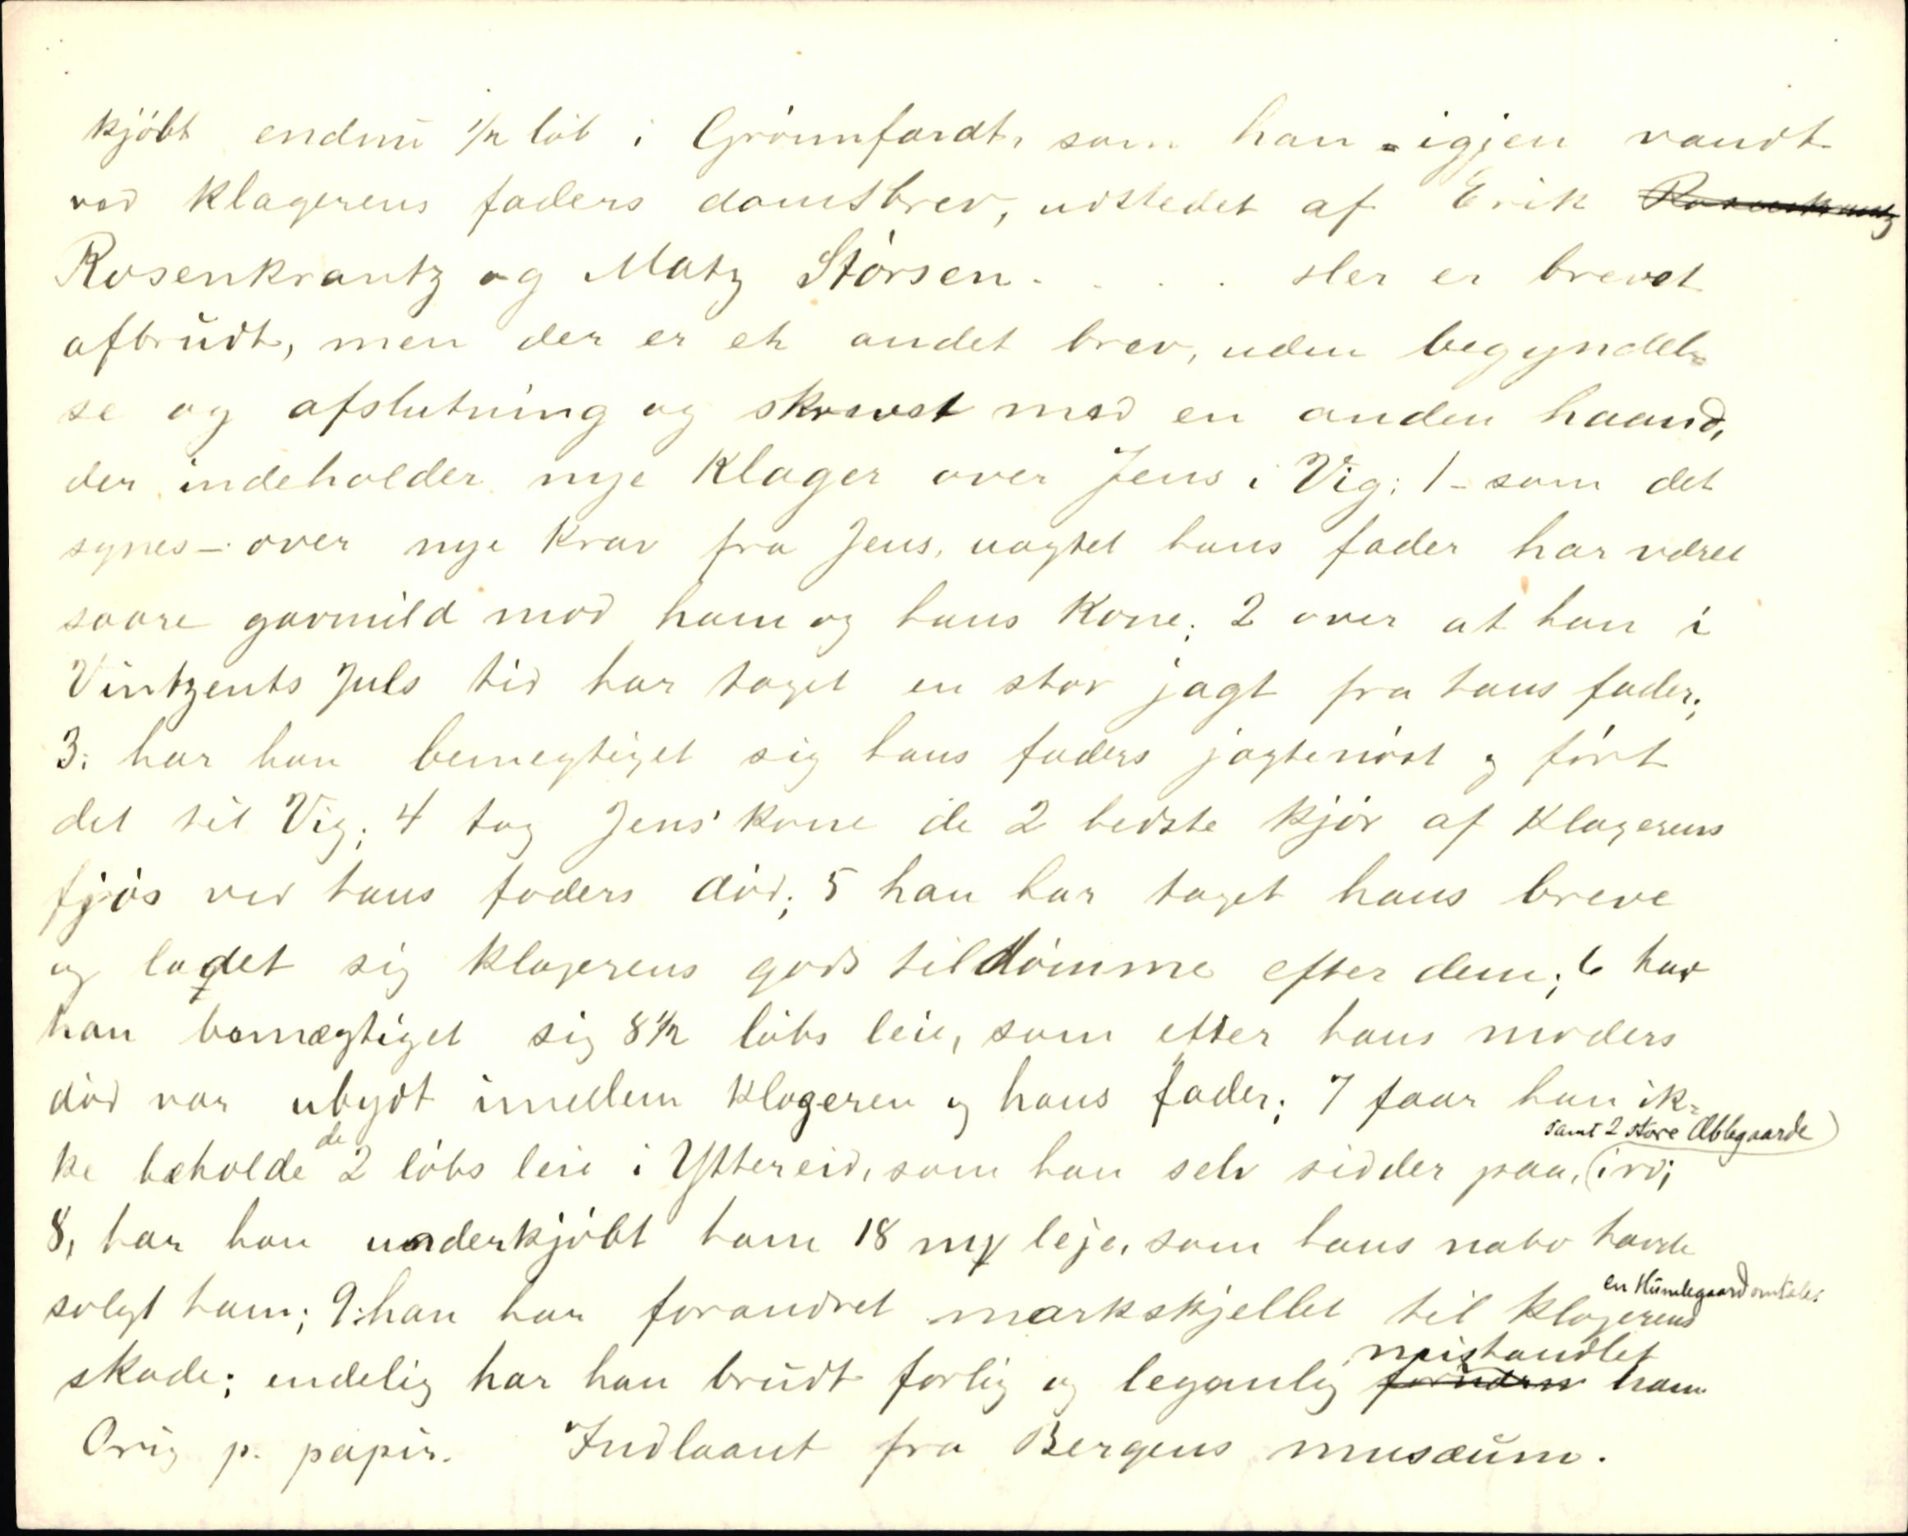 kjöbt endnu 1/2 löb i Grönnfardt, som han igjen vandt
ved klagerens faders domsbrev, udstedet af Erik Rosenkrantz
Rosenkrantz og Matz Störsen. . . . Her er brevet
afbrudt, men der er et andet brev, uden begyndel-
se og afslutning og skrevet med en anden haand,
der indeholder nye klager over Jens i Vig: 1 - som det
synes - over nye krav fra Jens, uagtet hans fader har været
saare gavmild mod ham og hans kone; 2 over at han i
Vintzents Juls tid har taget en stor jagt fra hans fader;
3: har han bemegtiget sig hans faders jagtenöst og fört
det til Vig; 4 tog Jens' kone de 2 bedste kjör af klagerens
fjös ved hans faders död; 5 han har taget hans breve
og ladet sig klagerens gods tildömme efter dem; 6 har
han bemægtiget sig 8 1/2 löbs leie, som efter hans moders
död var ubydt imellem klageren og hans fader; 7 faar han ik-
samt 2 store Æblegaarde
ke beholde de 2 löbs leie i Yttereid, som han selv sidder paa, i ro;
8, har han underkjöbt ham 18 mk leje, som hans nabo havde
solgt ham; 9: han har forandret markskjellet til klagerens
en Humlegaard omtales
skade; endelig har han brudt forlig og legemlig mishandlet ham
Orig p. papir. Indlaant fra Bergens musæum.